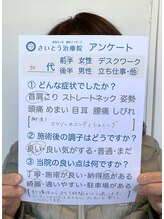 さいとう治療院 アンケート
30 代 前半 女性 デスクワーク
後半 男性 立ち仕事・他
①どんな症状でしたか？
首肩こり ストレートネック 姿勢
頭痛 めまい 目耳 腰痛 しびれ
マラソンのコンディショニング
②施術後の調子はどうですか？
良い・良い気がする・普通・まだ
③当院の良い点は何ですか？
丁寧・施術が良い・納得感がある
綺麗・通いやすい・駐車場がある